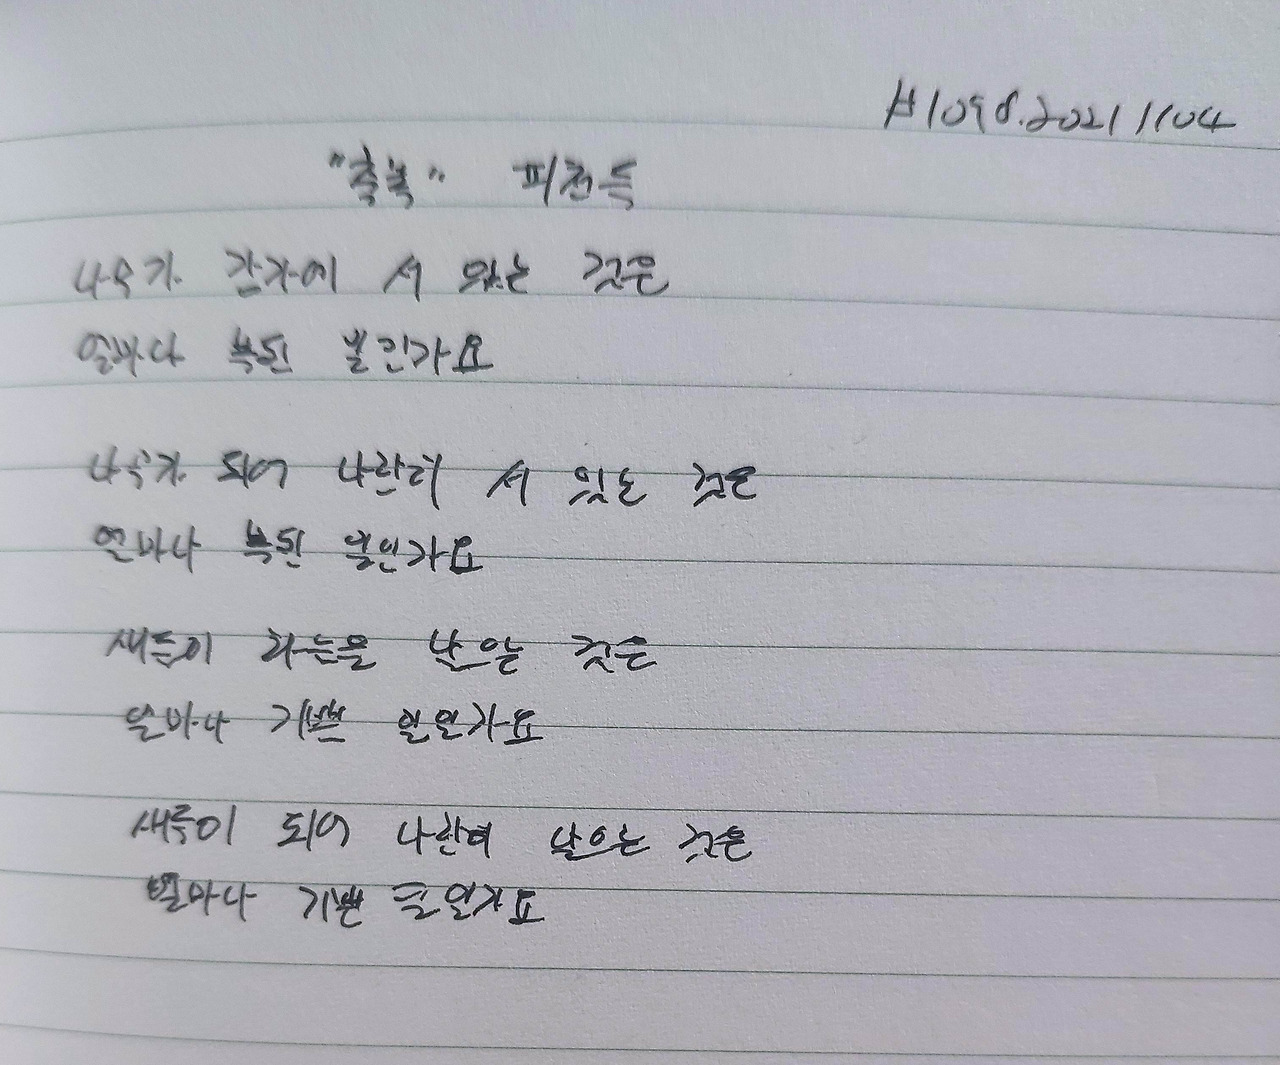 #1098.20211104
"축복" 피천득
나무가 강가에 서 있는 것은
얼마나 복된 일인가요
나무가 되어 나란히 서 있는 것은
얼마나 복된 일인가요
새들이 하늘을 날으는 것은
얼마나 기쁜 일인가요
새들이 되어 나란히 날으는 것은
얼마나 기쁜 일인가요